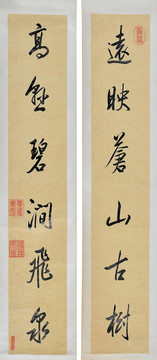 遠映蒼山古樹
高垂碧澗飛泉